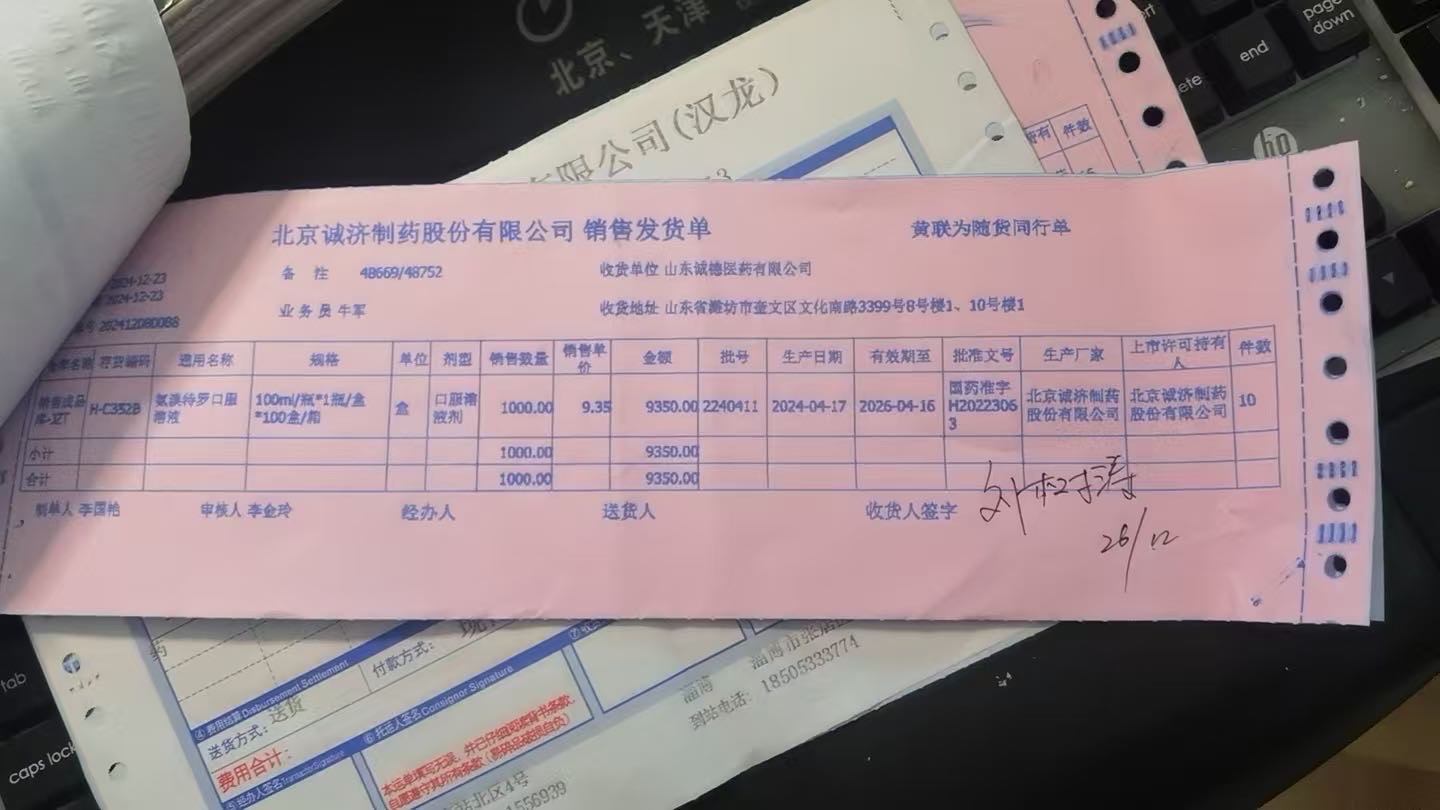 北京、天津
有限公司(汉龙)
end
page
down
hp
持有
件数
北京诚济制药股份有限公司 销售发货单
黄联为随货同行单
2024-12-23
备 注 48669/48752
收货单位 山东诚德医药有限公司
2024-12-23
业务员 牛军
收货地址 山东省潍坊市奎文区文化南路3399号8号楼1、10号楼1
202412080088
存货编码 通用名称 规格 单位 剂型 销售数量 销售单价 金额 批号 生产日期 有效期至 批准文号 生产厂家 上市许可持有人 件数
H-C352B 氨溴特罗口服溶液 100ml/瓶*1瓶/盒*100盒/箱 盒 口服溶液剂 1000.00 9.35 9350.00 2240411 2024-04-17 2026-04-16 国药准字H20223063 北京诚济制药股份有限公司 北京诚济制药股份有限公司 10
小计 1000.00 9350.00
合计 1000.00 9350.00
制单人 李国艳 审核人 李金玲 经办人 送货人 收货人签字
26/12
药
④费用结算 Disbursement Settlement
付款方式:
送货方式: 送货
费用合计:
⑤经办人签名 Transactor Signature
⑥托运人签名 Consignor Signature
本运单填写无误，并已仔细阅读背书条款，
自愿遵守其所有条款（易碎品破损自负）
淄博市张店
淄博
到站电话: 18505333774
站北区4号
1556939
tab
caps lock